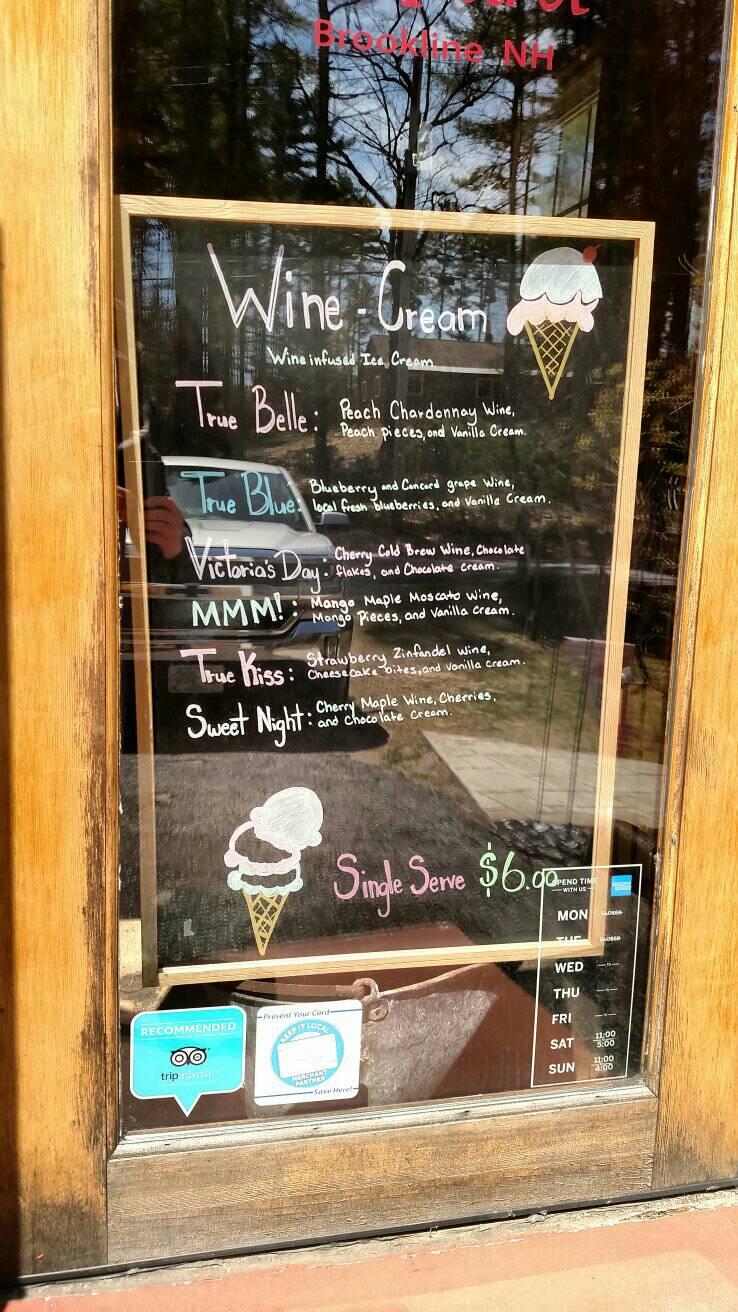 Brookline NH
Wine-Cream
Wine infused Ice Cream
True Belle: Peach Chardonnay Wine,
Peach pieces, and Vanilla Cream.
True Blue: Blueberry and Concord grape Wine,
local fresh blueberries, and Vanilla Cream.
Victoria's Day: Cherry Cold Brew Wine, Chocolate
flakes, and Chocolate cream.
MMM!: Mango Maple Moscato Wine,
Mango Pieces, and Vanilla cream.
True Kiss: Strawberry Zinfandel Wine,
Cheesecake bites, and Vanilla cream.
Sweet Night: Cherry Maple Wine, Cherries,
and Chocolate Cream.
Single Serve $6.00
SPEND TIME
WITH US
MON CLOSED
TUE CLOSED
WED
THU
FRI
SAT 11:00
5:00
SUN 11:00
4:00
RECOMMENDED
tripadvisor
Present Your Card
KEEP IT LOCAL
MERCHANT
PARTNER
Save Here!